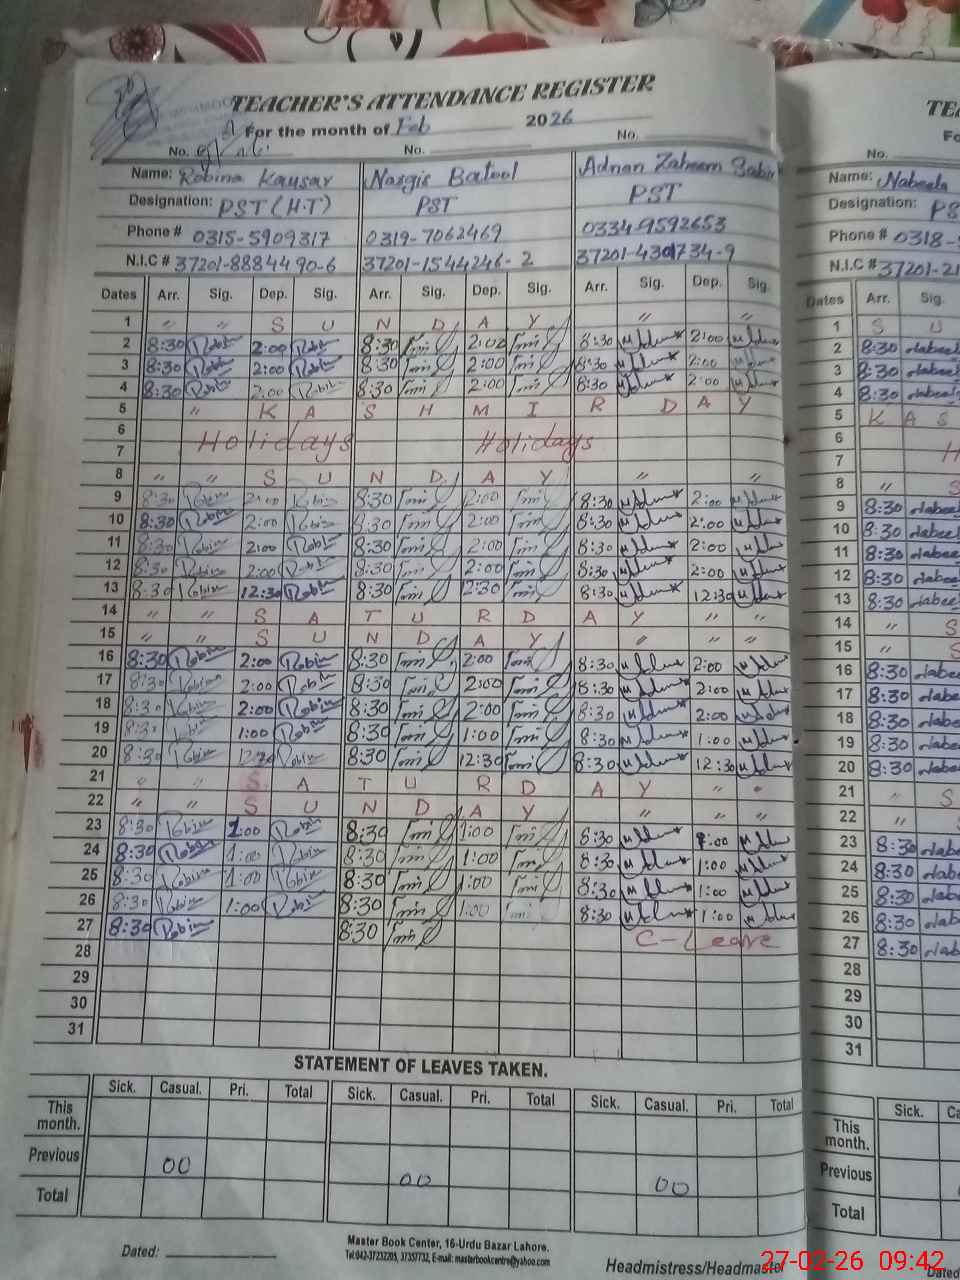 TEACHER'S ATTENDANCE REGISTER
For the month of Feb 2026
No. No. No.
Name: Robina Kausar Nargis Batool Adnan Zaheem Sabir
Designation: PST (H.T) PST PST
Phone # 0315-5909317 0319-7062469 0334-9592653
N.I.C # 37201-8884490-6 37201-1544246-2 37201-4301734-9
Dates Arr. Sig. Dep. Sig. Arr. Sig. Dep. Sig. Arr. Sig. Dep. Sig.
1 " " S U N D A Y " "
2 8:30 Robin 2:00 Robin 8:30 2:00 8:30 2:00
3 8:30 Robin 2:00 Robin 8:30 2:00 8:30 2:00
4 8:30 Robin 2:00 Robin 8:30 2:00 8:30 2:00
5 " K A S H M I R D A Y
6 Holidays Holidays
7
8 " " S U N D A Y " "
9 8:30 Robin 2:00 Robin 8:30 2:00 8:30 2:00
10 8:30 Robin 2:00 Robin 8:30 2:00 8:30 2:00
11 8:30 Robin 2:00 Robin 8:30 2:00 8:30 2:00
12 8:30 Robin 2:00 Robin 8:30 2:00 8:30 2:00
13 8:30 Robin 12:30 Robin 8:30 12:30 8:30 12:30
14 " " S A T U R D A Y " "
15 " " S U N D A Y " " "
16 8:30 Robin 2:00 Robin 8:30 2:00 8:30 2:00
17 8:30 Robin 2:00 Robin 8:30 2:00 8:30 2:00
18 8:30 Robin 2:00 Robin 8:30 2:00 8:30 2:00
19 8:30 Robin 1:00 Robin 8:30 1:00 8:30 1:00
20 8:30 Robin 12:30 Robin 8:30 12:30 8:30 12:30
21 " " S A T U R D A Y " "
22 " " S U N D A Y " "
23 8:30 Robin 1:00 Robin 8:30 1:00 8:30 1:00
24 8:30 Robin 1:00 Robin 8:30 1:00 8:30 1:00
25 8:30 Robin 1:00 Robin 8:30 1:00 8:30 1:00
26 8:30 Robin 1:00 Robin 8:30 1:00 8:30 1:00
27 8:30 Robin 8:30 C-Leave
28
29
30
31
STATEMENT OF LEAVES TAKEN.
Sick. Casual. Pri. Total Sick. Casual. Pri. Total Sick. Casual. Pri. Total
This month.
Previous 00 00 00
Total
Dated:
Master Book Center, 16-Urdu Bazar Lahore.
Tel:042-37232205, 37357732, E-mail: masterbookcentre@yahoo.com
Headmistress/Headmaster
No.
Name: Nabeela
Designation: PS
Phone # 0318-
N.I.C # 37201-21
Dates Arr. Sig.
1 S U
2 8:30 Nabeel
3 8:30 Nabeel
4 8:30 Nabeel
5 K A S
6 H
7
8 " S
9 8:30 Nabeel
10 8:30 Nabeel
11 8:30 Nabeel
12 8:30 Nabeel
13 8:30 Nabeel
14 " S
15 " S
16 8:30 Nabe
17 8:30 Nabe
18 8:30 Nabe
19 8:30 Nabe
20 8:30 Nabe
21 " S
22 "
23 8:30 Nabe
24 8:30 Nabe
25 8:30 Nabe
26 8:30 Nabe
27 8:30 Nabe
28
29
30
31
Sick.
This month.
Previous
Total
Dated
27-02-26 09:42